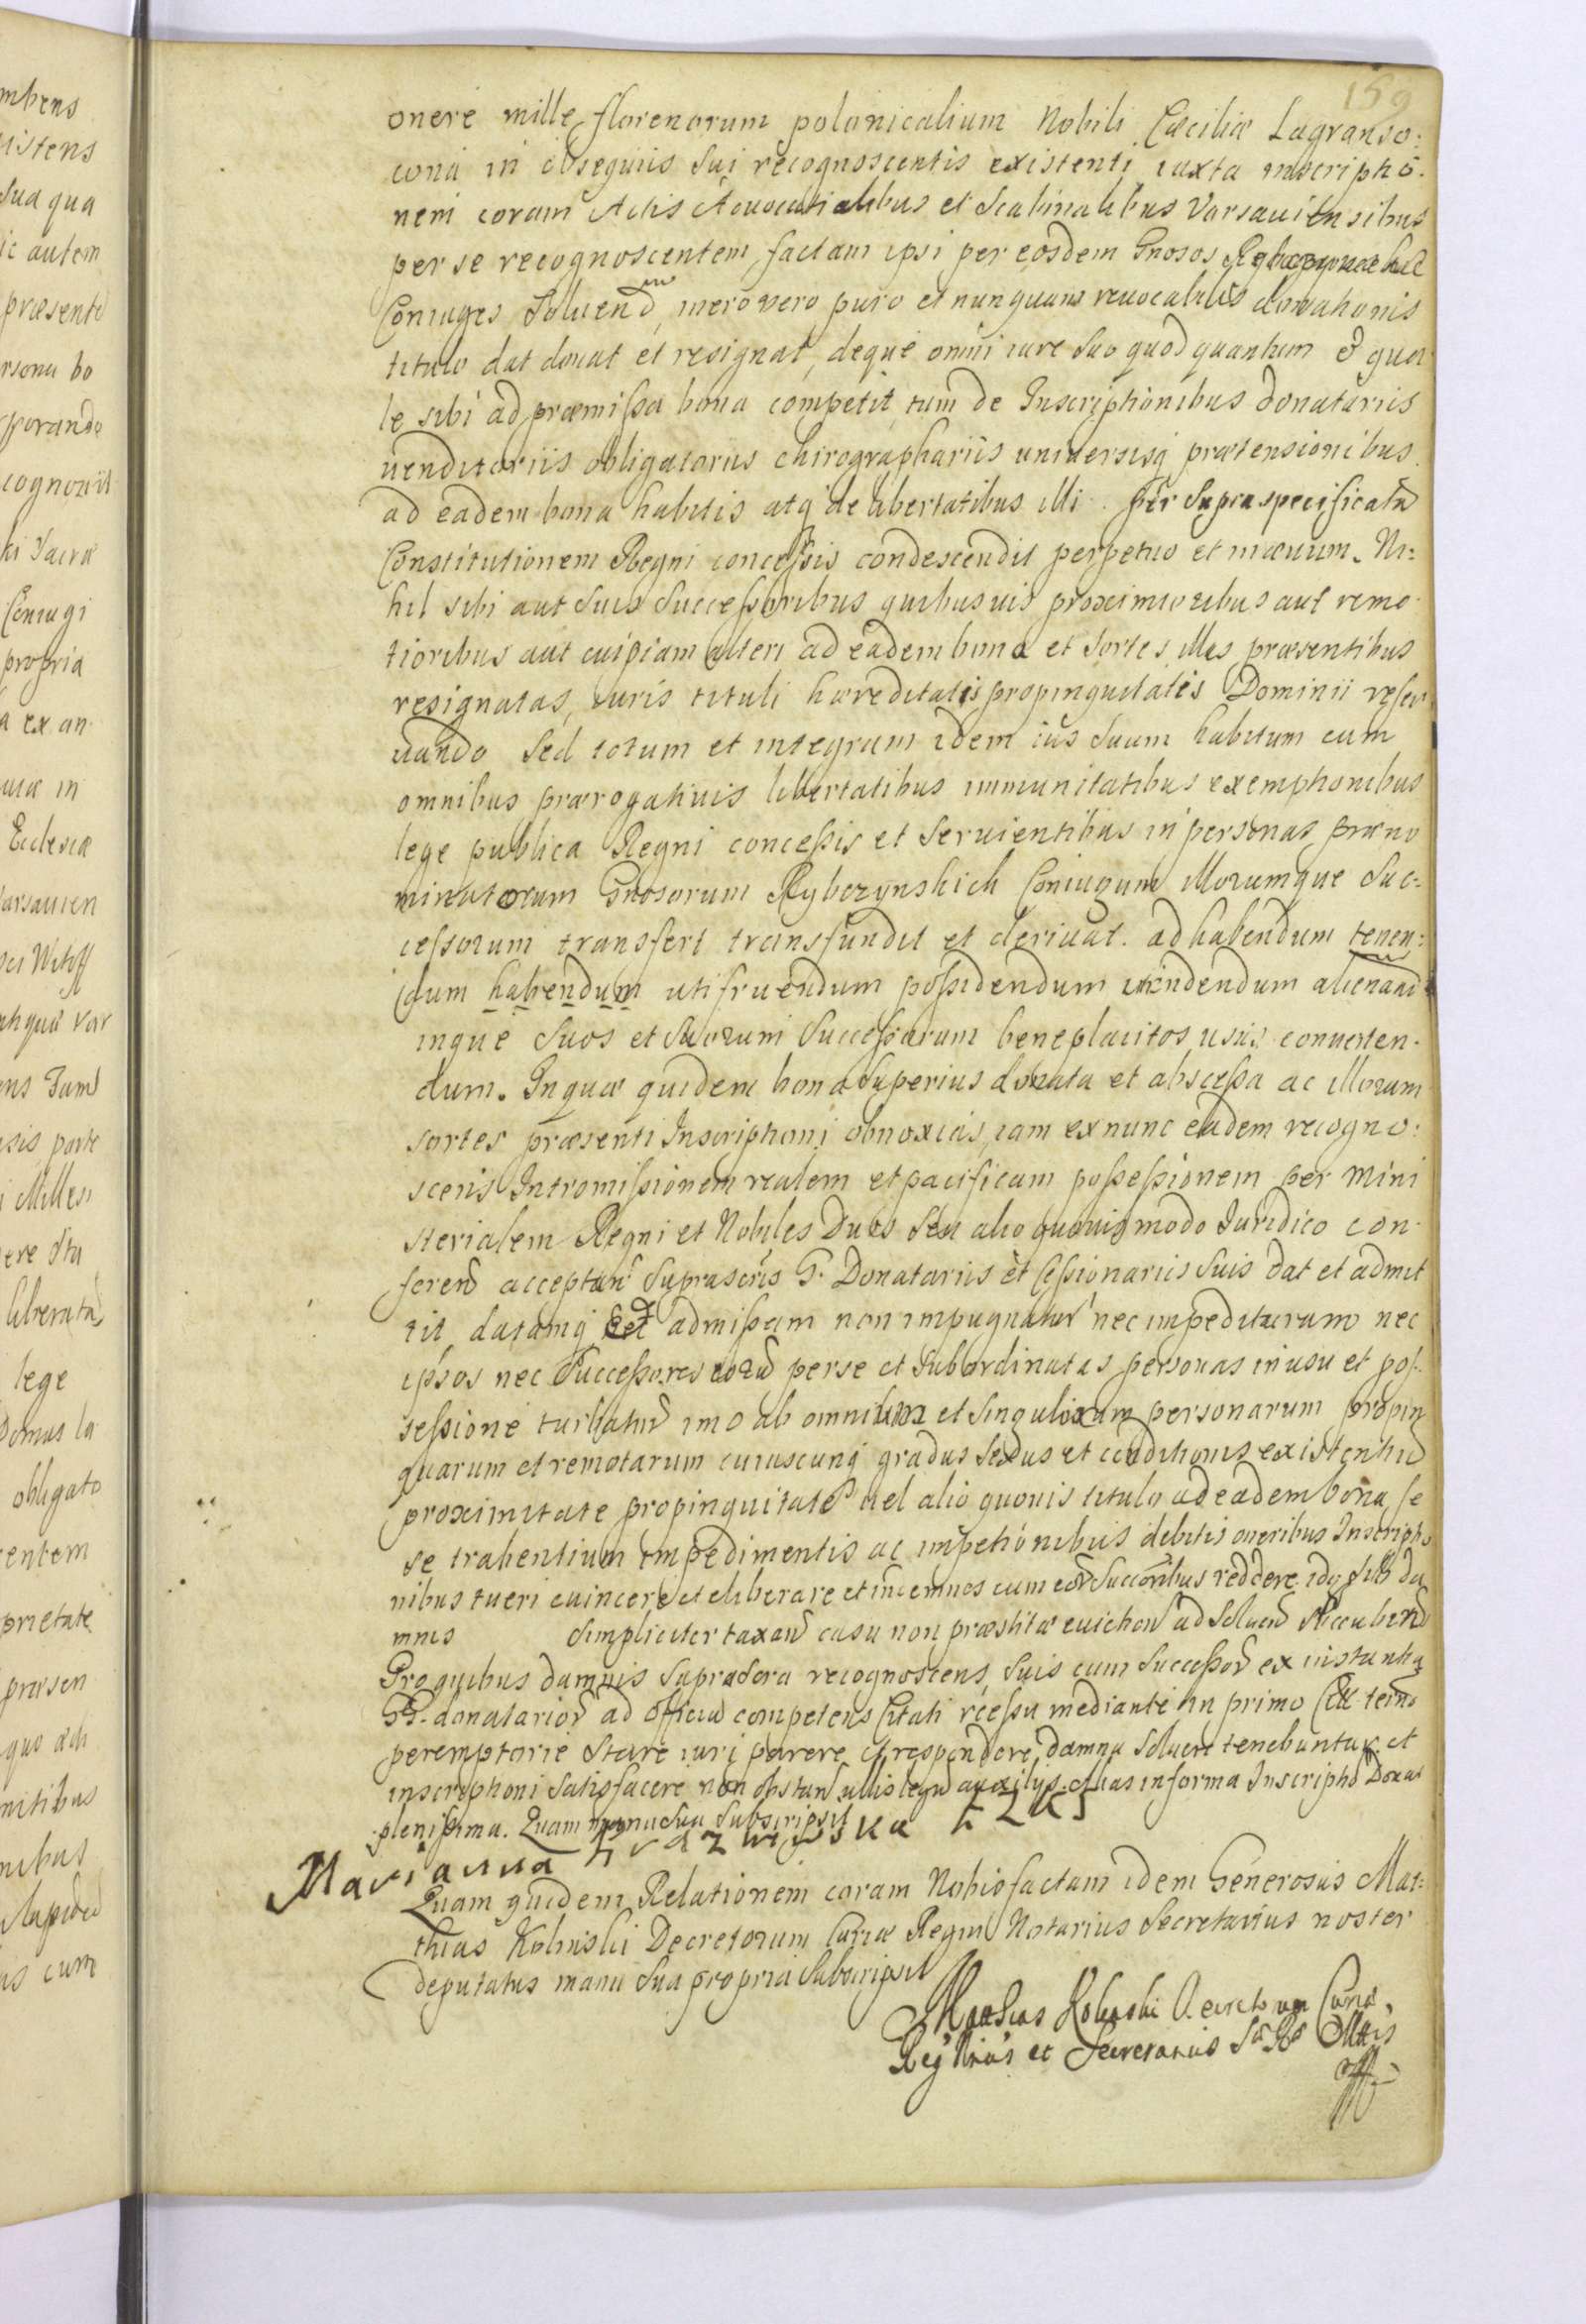 159
onere mille florenorum polonicalium Nobili Cæciliæ Lagranso:
in obsequiis sui recognoscentis existenti iuxta inscriptio:
nem coram Actis Aduocatialibus et Scabinalibus Varsauiensibus
per se recognoscentem factam ipsi per eosdem Gnosos
Coniuges Soluend, mero vero puro et nunquam reuocabilis donationis
titulo dat donat et resignat, deque omni iure suo quod quantum & qua
le sibi ad præmissa bona competit tum de Inscriptionibus donatariis
uenditoriis obligatoriis chirographariis uniuersisq prætensionibus
ad eadem bona habitis atq de libertatibus illi per supra specificata
Constitutionem Regni concessis condescendit perpetuo et in æuum. Ni:
hil sibi aut suis Successoribus quibusuis proximioribus aut remo
tioribus aut cuipiam alteri ad eadem bona et sortes illas præsentibus
resignatas, iuris tituli hæreditatis propinquitatis Dominii reser
uando sed totum et integrum idem ius suum habitum cum
omnibus prærogatiuis libertatibus immunitatibus exemptionibus
lege publica Regni concessis et seruientibus in personas præno
minatorum Gnosorum Rybczynskich Coniugum illorumque Suc:
cessorum transfert transfundit et deriuat. ad habendum tenen:
dum habendum utifruendum possidendum uendendum alienand
inque suos et suorum Successorum beneplacitos usus conuerten.
dum. In quæ quidem bona superius donata et abscessa ac illorum
sortes præsenti Inscriptioni obnoxias, iam ex nunc eadem recogno:
scens Intromissionem realem et pacificam possessionem per Mini
sterialem Regni et Nobiles Duos seu alio quouis modo Iuridico con
ferend acceptan suprascris G. Donatariis et Cessionariis suis dat et admit
tit datamq et admissam non impugnatur nec impedituram nec
ipsos nec Successores eorū per se et subordinatas personas in usu et pos
sessione turbatur imo ab omnium et singularum personarum propin
quarum et remotarum cuiuscunq gradus sexus et conditionis existentiū
proximitate propinquitate uel alio quouis titulo ad eadem bona se
se trahentium impedimentis ac impetionibus debitis oneribus Inscriptio
nibus tueri euincere et eliberare et indemnes cum eor Succoribus reddere idq sub da
mnis simpliciter taxan casu non præstitæ euiction ad soluend succubend
Pro quibus damnis supradora recognoscens suis cum Successor ex instantia
GG. donatarior ad officiū competens Citati rcessu mediante in primo Citt termo
peremptorie stare iuri parere et respondere damna soluere tenebuntur et
inscriptioni satisfacere non obstan ullis legū auxilijs alias in forma Inscriptio Donat
plenissima. Quam manu sua subscripsit
Marianna
Quam quidem Relationem coram Nobis factam idem Generosus Mat:
thias Kobuski Decretorum Curiæ Regni Notarius Secretarius noster
deputatus manu sua propria subscripsit
Mathias Kobuski Decretorum Curiæ
Reg Nrius et Secretarius Sæ Ræ Mttis